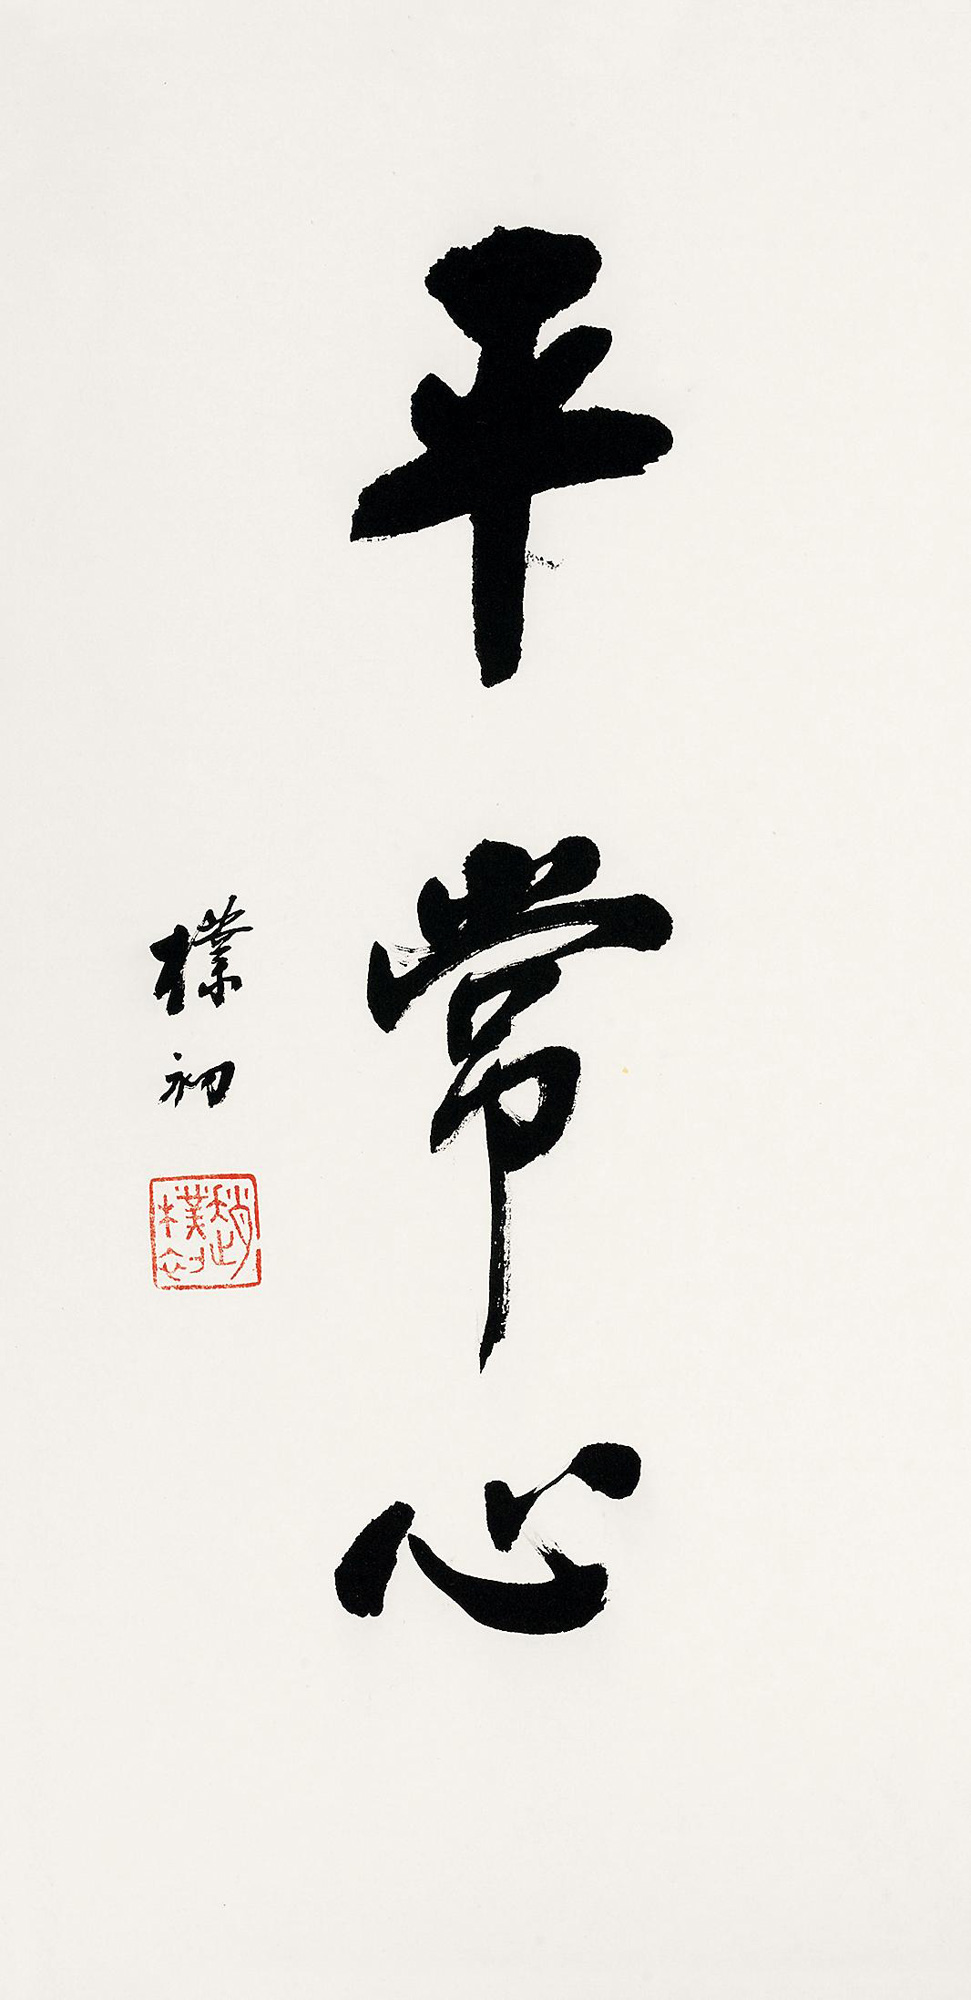 平常心
樸初
趙樸初